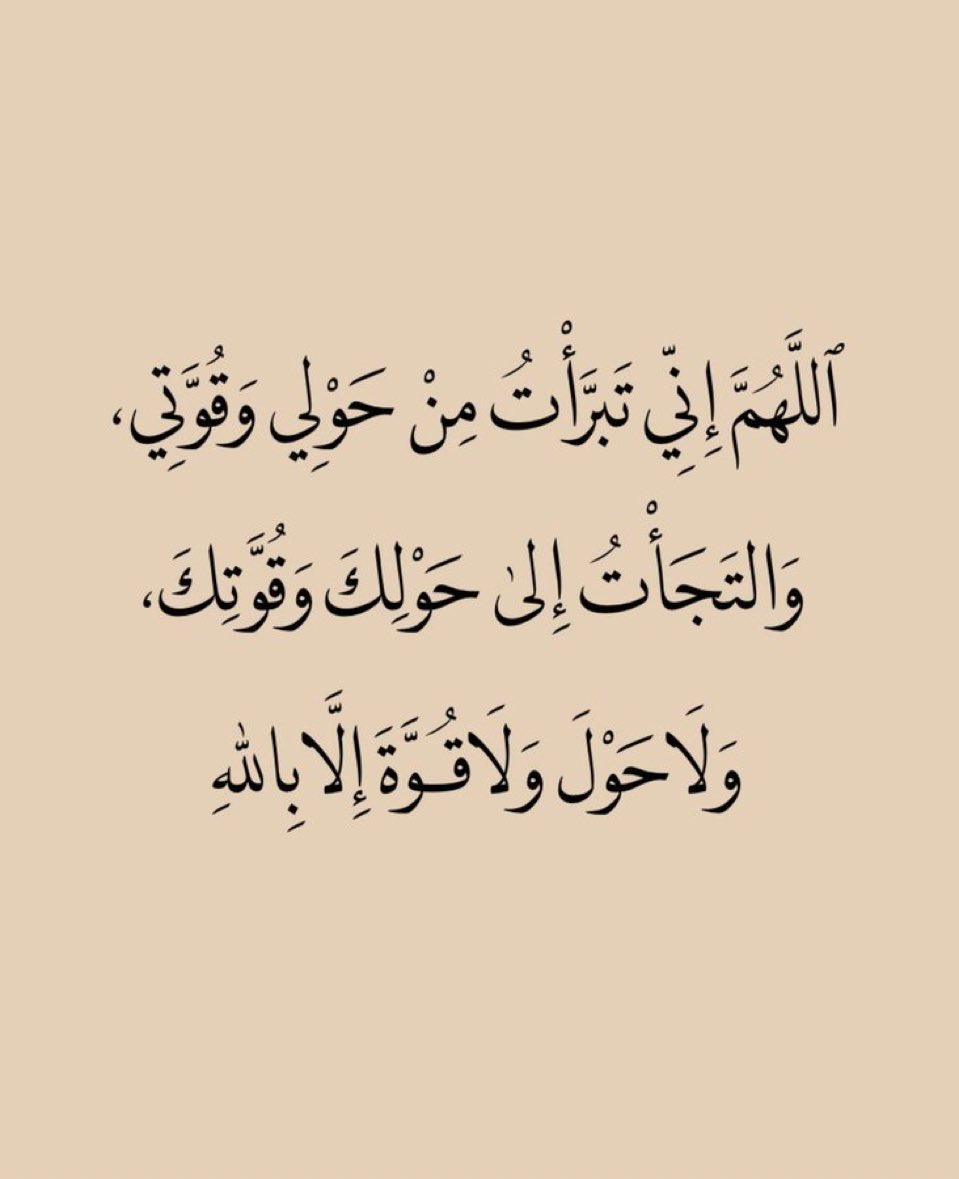 ٱللَّهُمَّ إِنِّي تَبَرَّأْتُ مِنْ حَوْلِي وَقُوَّتِي،
وَالتَجَأْتُ إِلىٰ حَوْلِكَ وَقُوَّتِكَ،
وَلَا حَوْلَ وَلَا قُـوَّةَ إِلَّا بِاللهِ